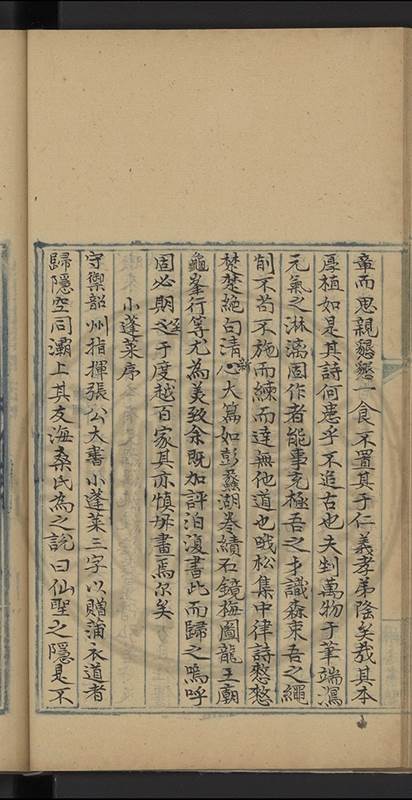 章而思親懇懇一食不置其于仁義孝弟隆矣哉其本
厚植如是其詩何患乎不追古也夫剉萬物于筆端瀉
元氣之淋漓固作者能事克極吾之才識森束吾之繩
削不苟不施而練而達無他道也哦松集中律詩愁愁
楚楚絕句清新心大篇如彭蠡湖卷續石鏡梅圖龍王廟
龜峯行等尤為美致余既加評泊復書此而歸之嗚呼
固必期至于度越百家其亦慎毋畫焉尔矣
小蓬萊序
守禦韶州指揮張公大書小蓬萊三字以贈蒲衣道者
歸隱空同灞上其友海桑氏為之說曰仙聖之隱見不